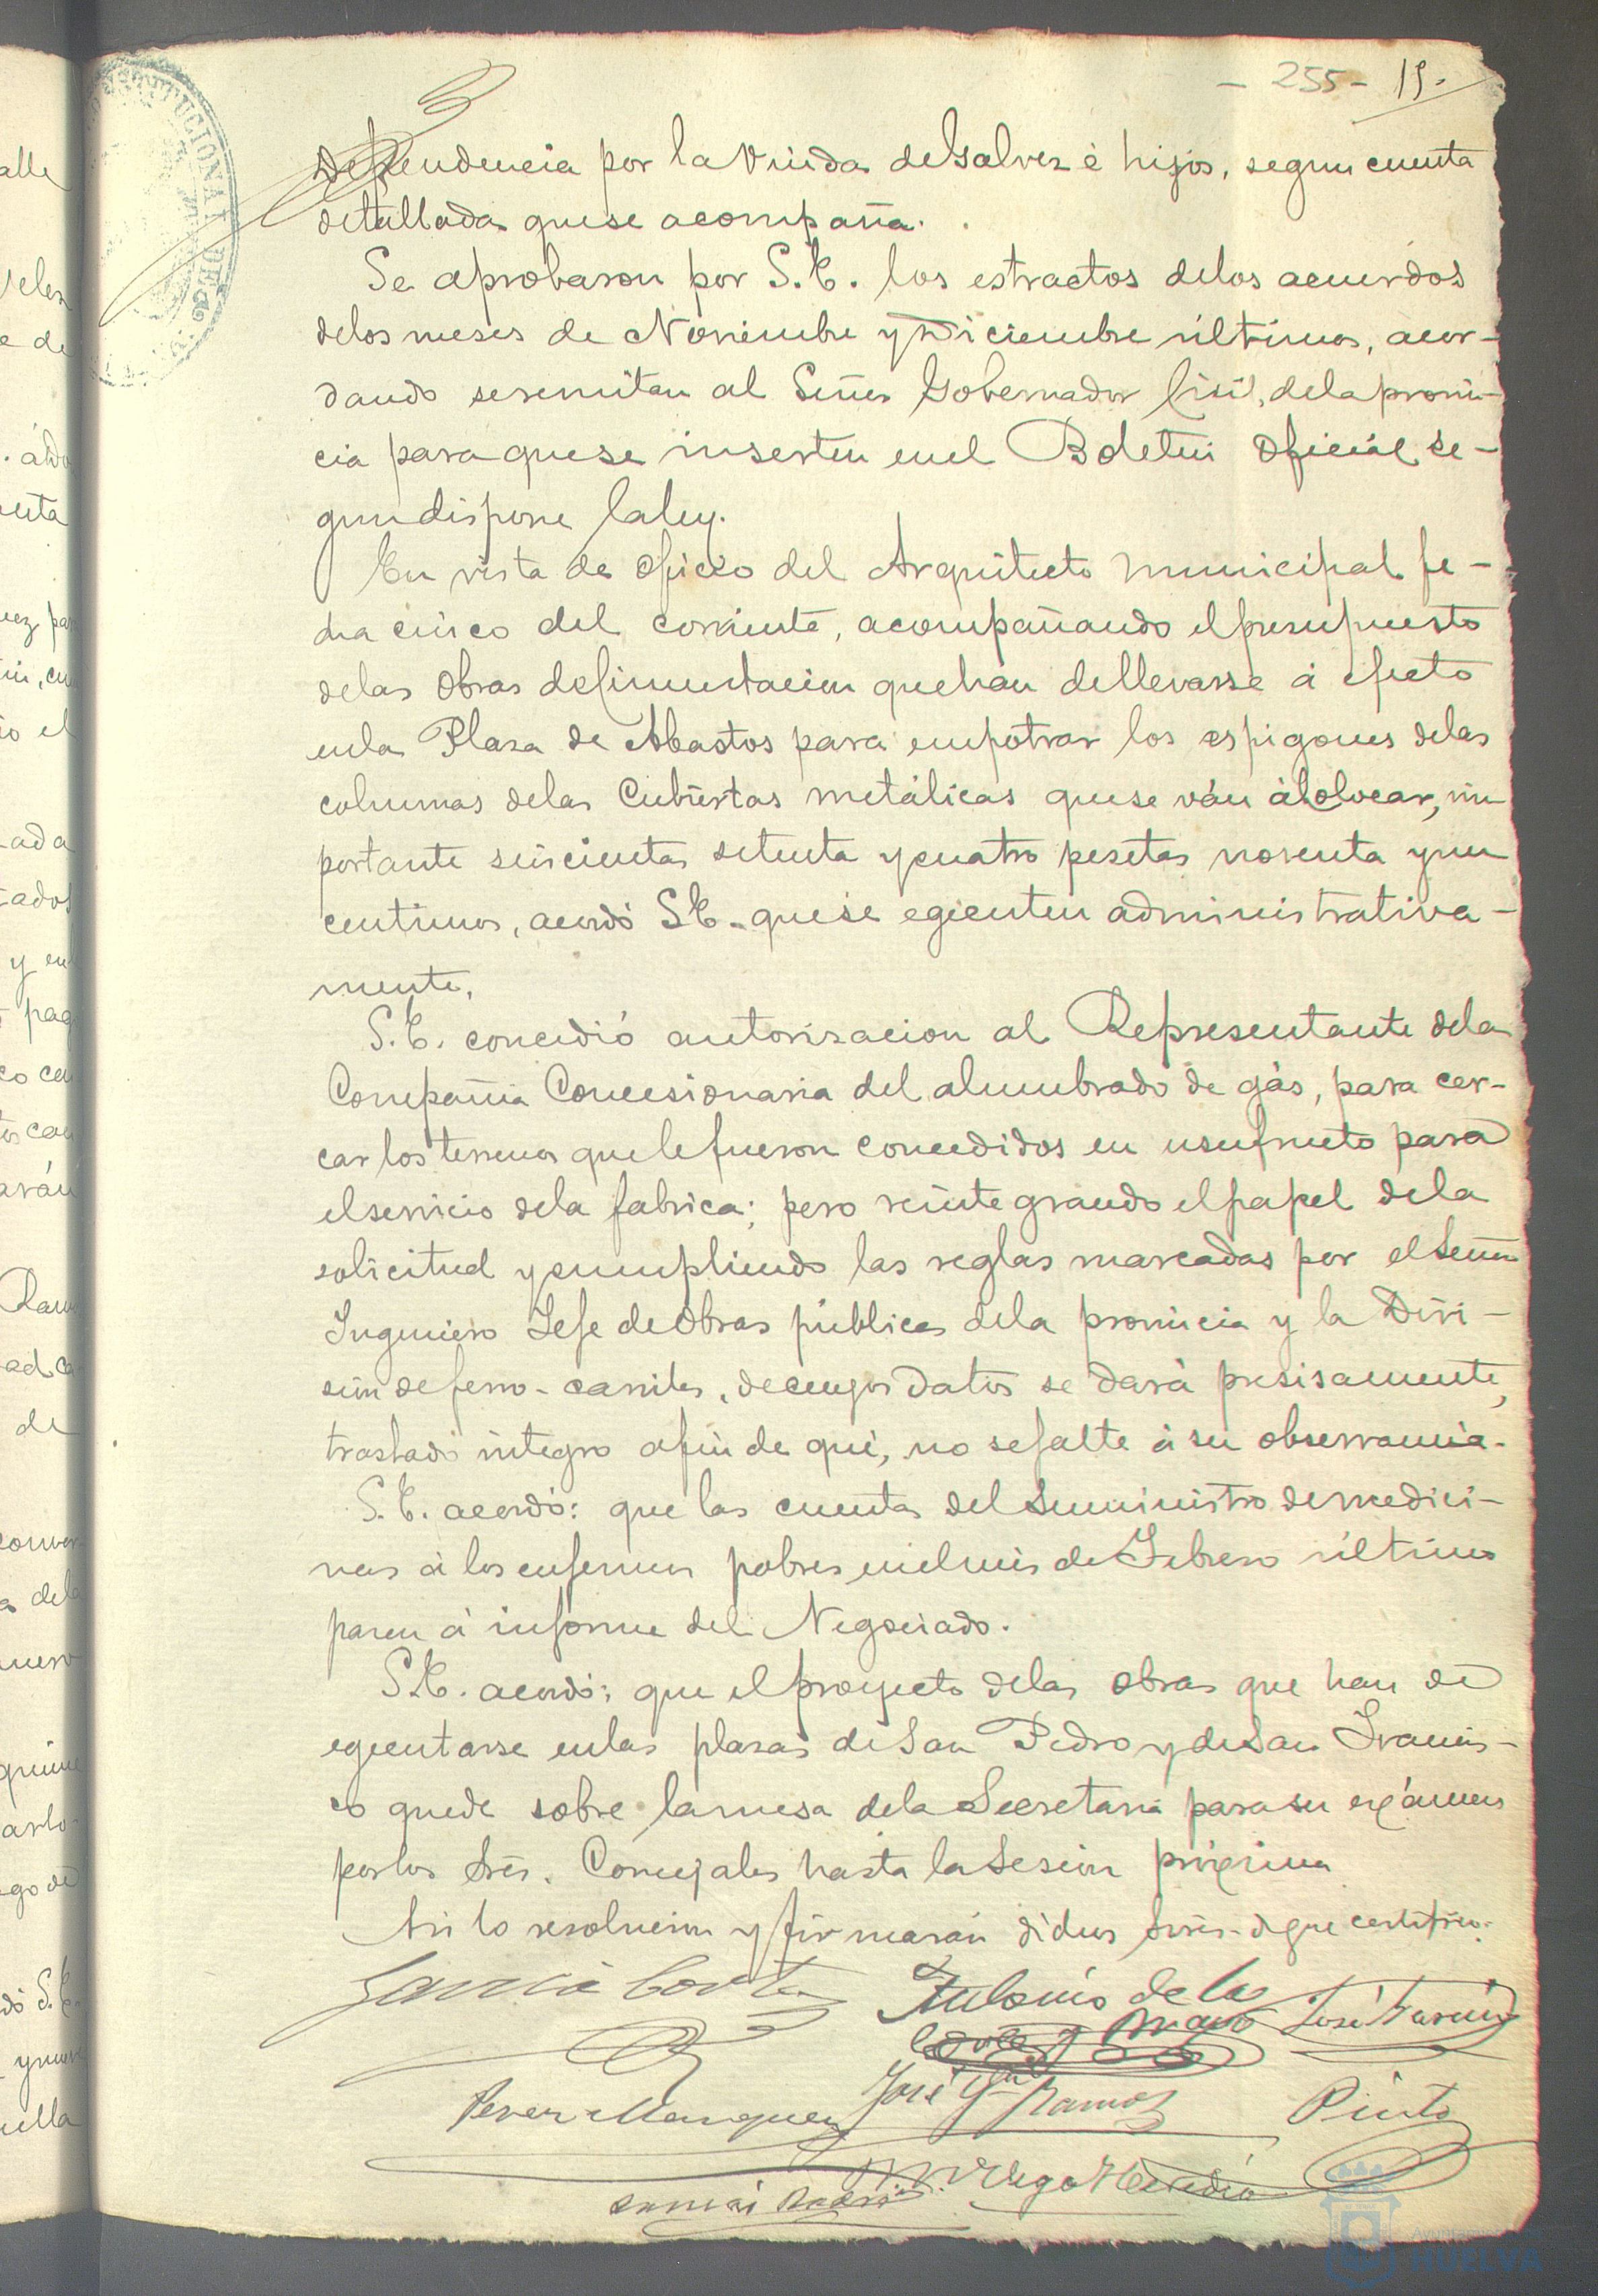 - 255 - 19.
Dependencia por la Viuda de Galvez é hijos, segun cuenta
detallada que se acompaña.
Se aprobaron por S.E. los estractos de los acuerdos
de los meses de Noviembre y Diciembre últimos, acor-
dando se remitan al Señor Gobernador Civil, de la provin-
cia para que se inserten en el Boletin Oficial se-
gun dispone la ley.
En vista de oficio del Arquitecto Municipal fe-
cha cinco del corriente, acompañando el presupuesto
de las obras de cimentacion que han de llevarse á efecto
en la Plaza de Abastos para empotrar los espigones de las
columnas de las Cubiertas metálicas que se ván á colocar, im
portante seiscientas setenta y cuatro pesetas noventa y un
centimos, acordó S.E. que se egecuten administrativa-
mente.
S.E. concedió autorizacion al Representante de la
Compañia Concesionaria del alumbrado de gás, para cer-
car los terrenos que le fueron concedidos en usufructo para
el servicio de la fabrica; pero reintegrando el papel de la
solicitud y cumpliendo las reglas marcadas por el Señor
Ingeniero Gefe de Obras públicas de la provincia y la Divi-
sion de ferro-carriles, de cuyos datos se dará presisamente,
traslado integro á fin de qué, no se falte á su observancia.
S.E. acordó: que las cuentas del Suministro de medici-
nas á los enfermos pobres en el mes de Febrero último
pasen á informe del Negociado.
S.E. acordó: que el proyecto de las obras que han de
egecutarse en las plazas de San Pedro y de San Francis-
co quede sobre la mesa de la Secretaria para su exámen
por los Sres. Concejales hasta la Sesion próxima
Asi lo resolvieron y firmarán dichos Sres. de que certifico.
Garcia Cortes Antonio de la
Corte y Bravo José Garcia
Perez Marquez José Gª Ramos Pinto
Vego Heredia
HUELVA